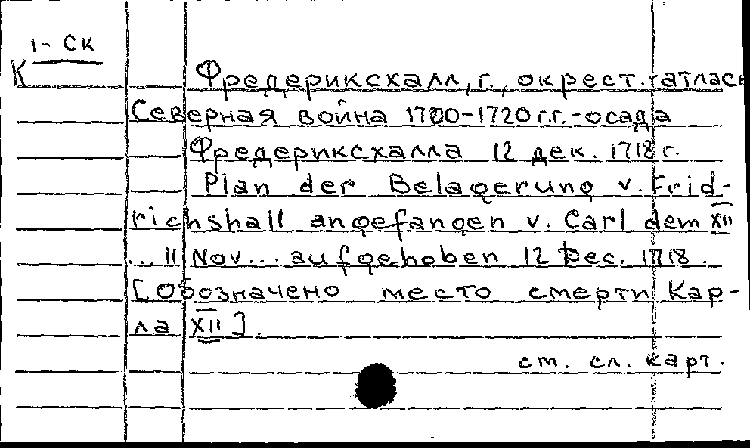 1-СК
К
Фредериксхалл, г., окрест. атлас
Северная война 1700-1720 г.г.-осада
Фредериксхалла 12 дек. 1718 г.
Plan der Belagerung v. Frid-
richshall angefangen v. Carl dem XII
... 11 Nov... aufgehoben 12 Dec. 1718.
[Обозначено место смерти Кар-
ла XII].
см. сл. карт.